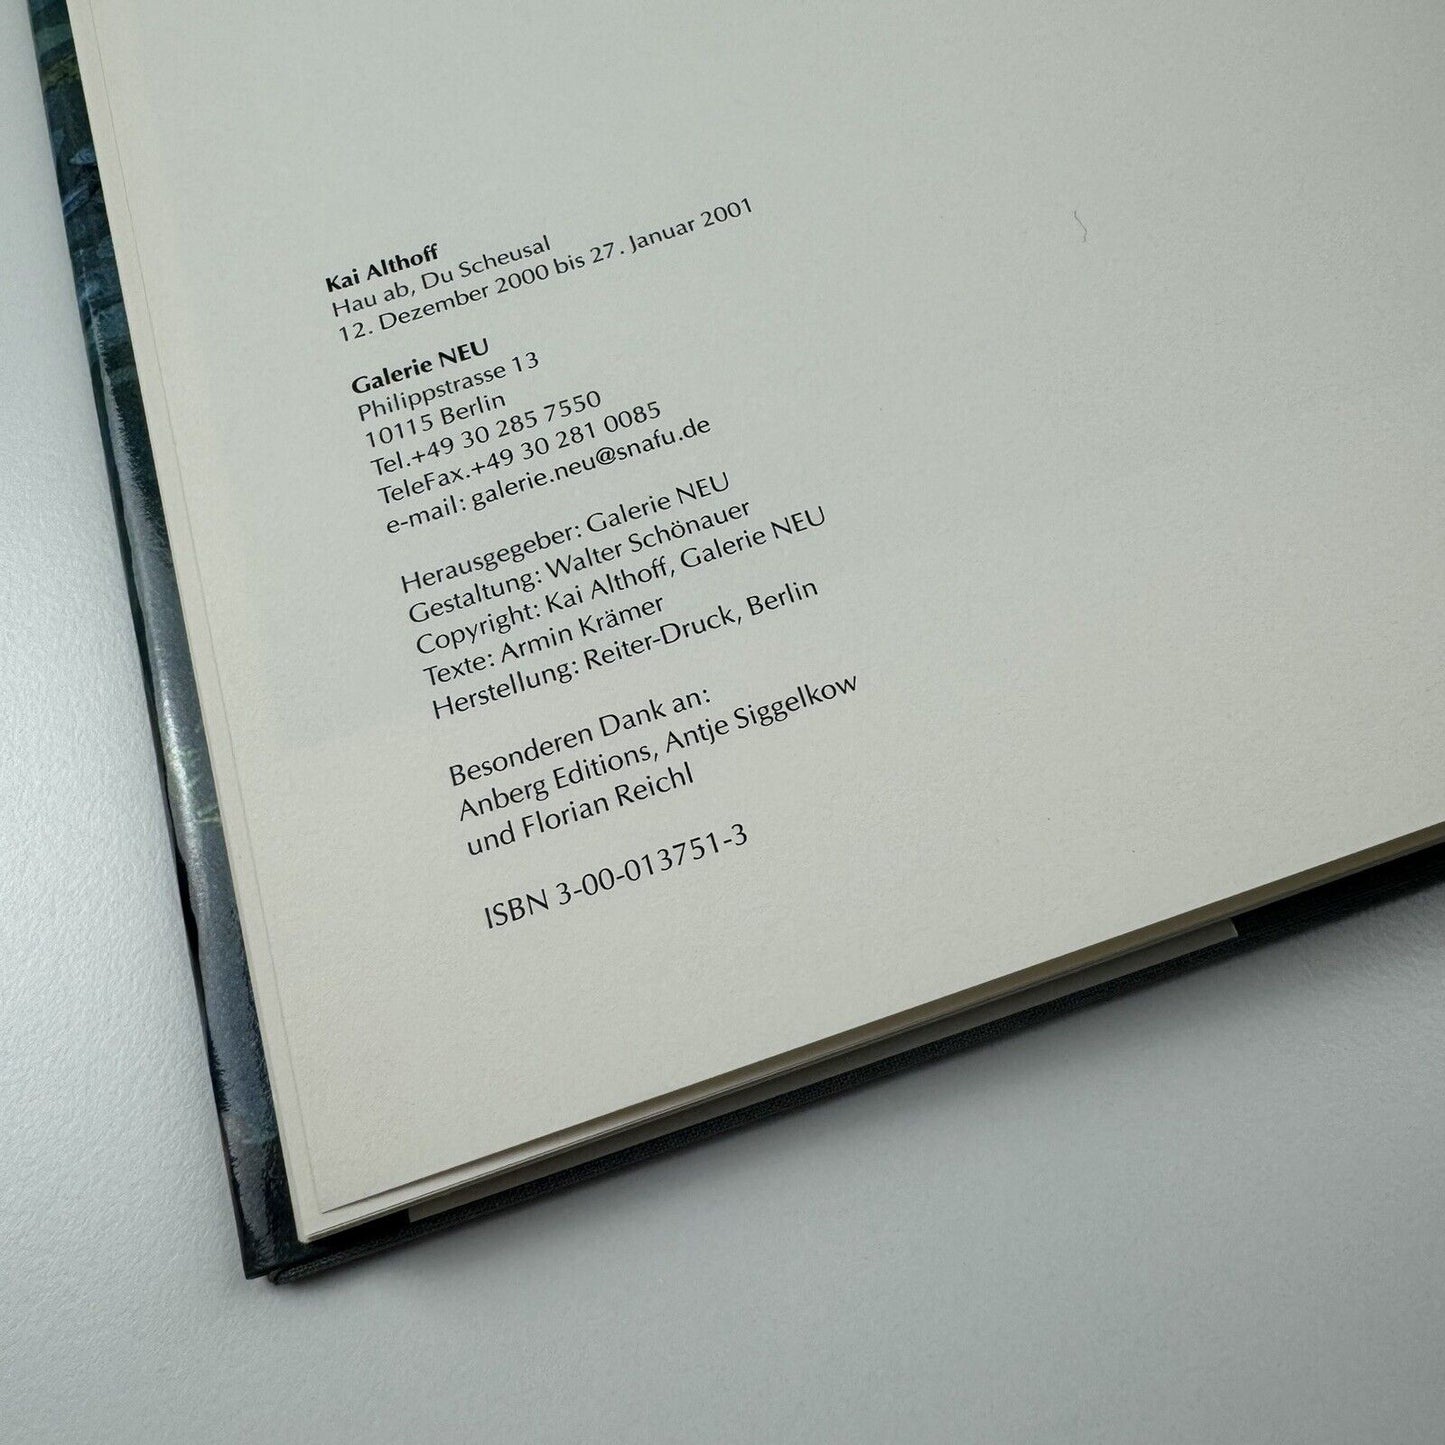 Kai Althoff
Hau ab, Du Scheusal
12. Dezember 2000 bis 27. Januar 2001
Galerie NEU
Philippstrasse 13
10115 Berlin
Tel.+49 30 285 7550
TeleFax.+49 30 281 0085
e-mail: galerie.neu@snafu.de
Herausgegeber: Galerie NEU
Gestaltung: Walter Schönauer
Copyright: Kai Althoff, Galerie NEU
Texte: Armin Krämer
Herstellung: Reiter-Druck, Berlin
Besonderen Dank an:
Anberg Editions, Antje Siggelkow
und Florian Reichl
ISBN 3-00-013751-3